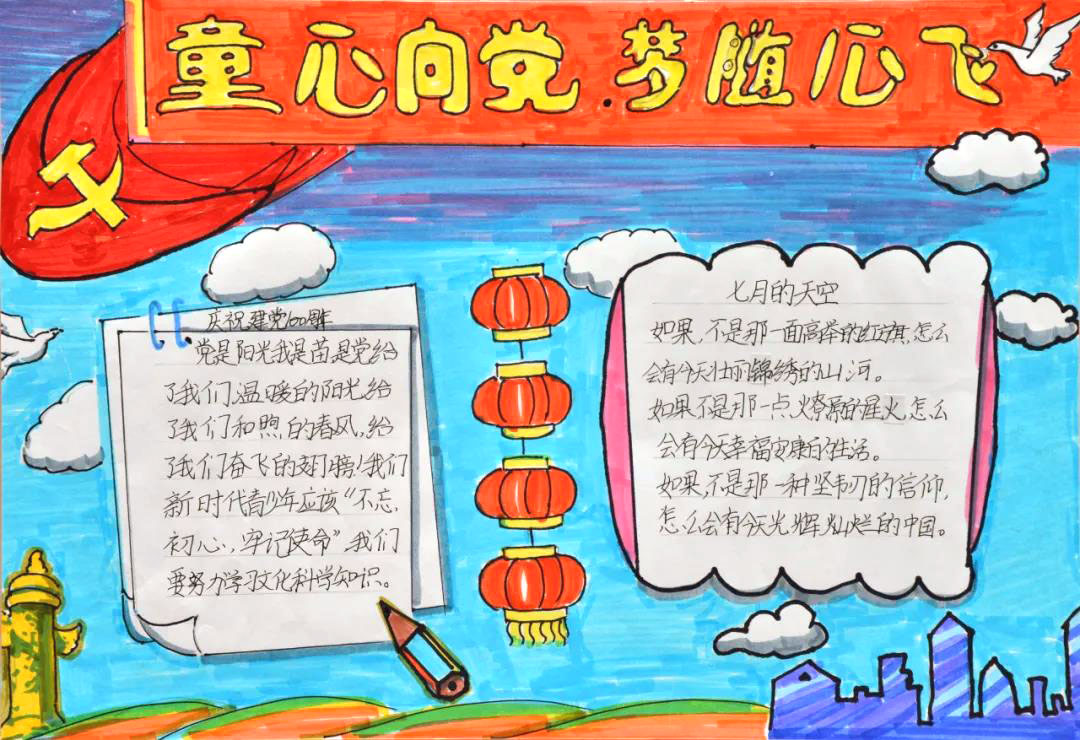 童心向党.梦随心飞
庆祝建党100周年
党是阳光我是苗是党给
了我们温暖的阳光给
了我们和煦的春风,给
了我们奋飞的翅膀!我们
新时代青少年应该“不忘
初心,牢记使命”,我们
要努力学习文化科学知识。
七月的天空
如果,不是那一面高举的红旗,怎么
会有今天壮丽锦绣的山河。
如果不是那一点燎原的星火,怎么
会有今天幸福安康的生活。
如果,不是那一种坚韧的信仰,
怎么会有今天光辉灿烂的中国。